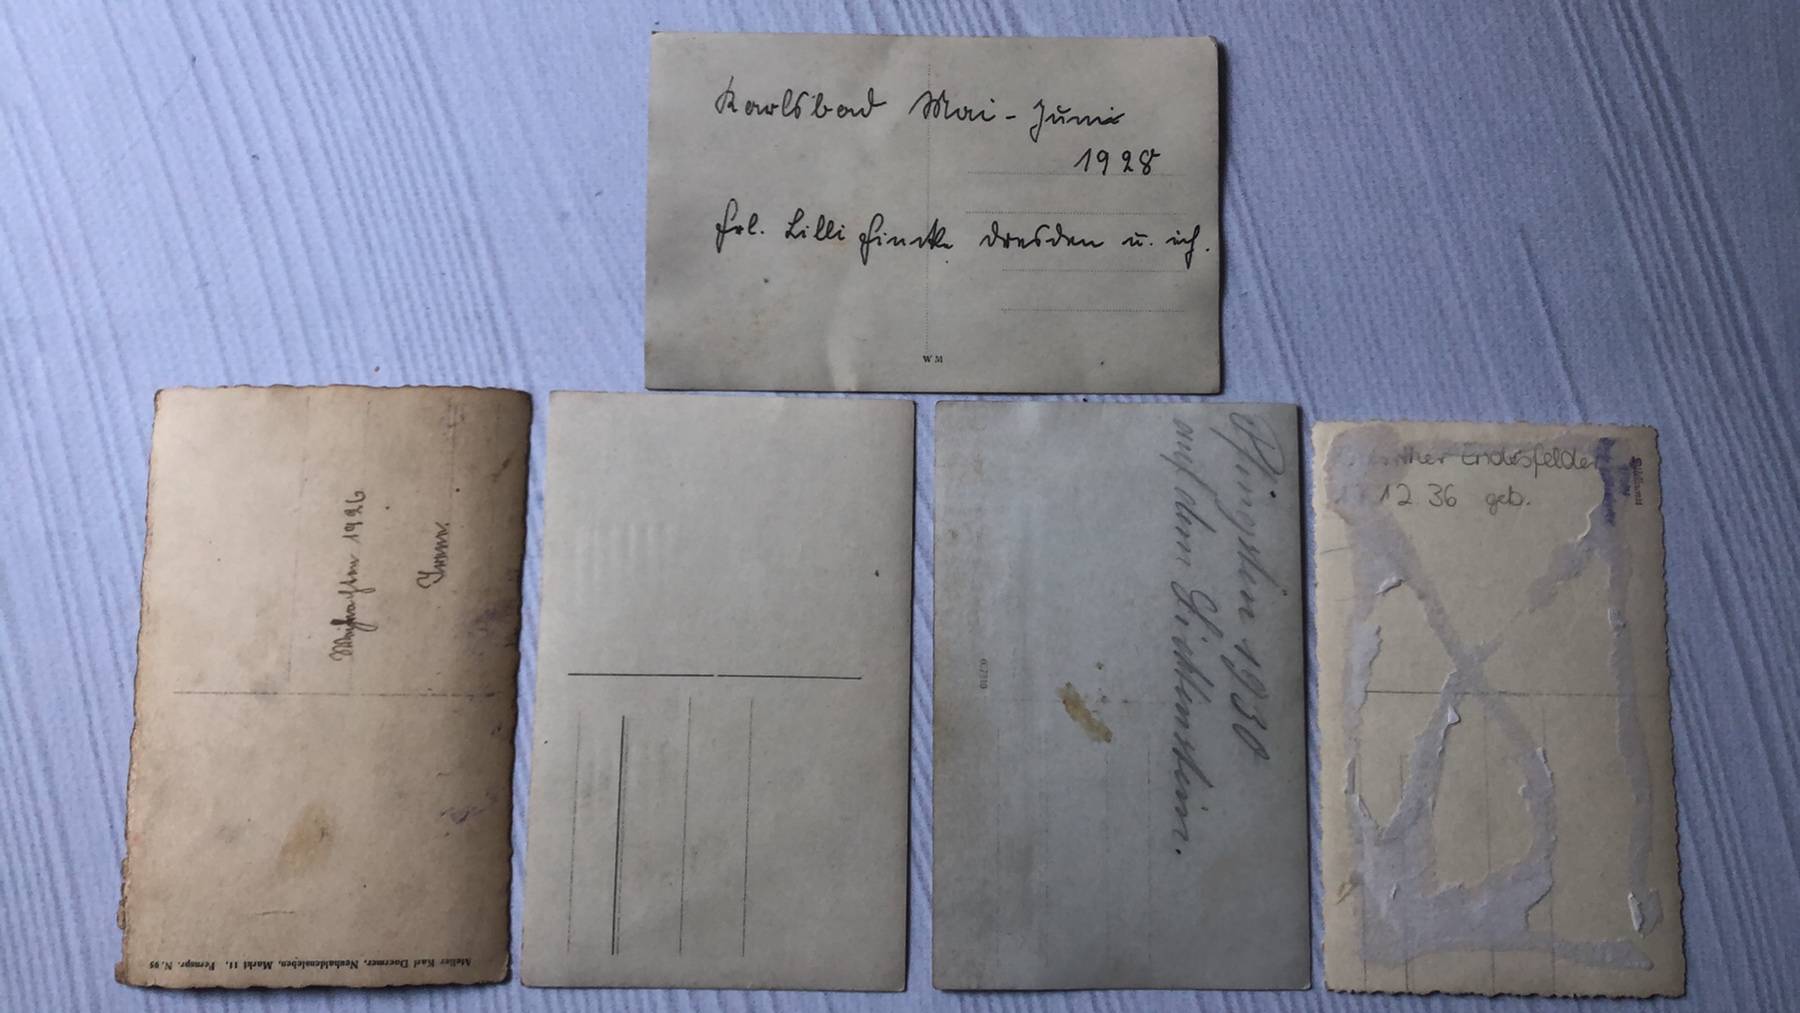 Karlsbad Mai - Juni
1928
Frl. Lilli Fincke Dresden u. ich.
W M
Weihnachten 1926
Atelier Karl Daermer, Neuhaldensleben, Markt 11, Fernspr. N. 95
Pfingsten 1930
auf dem Lichtenstein.
Endesfelder
12 36 geb.